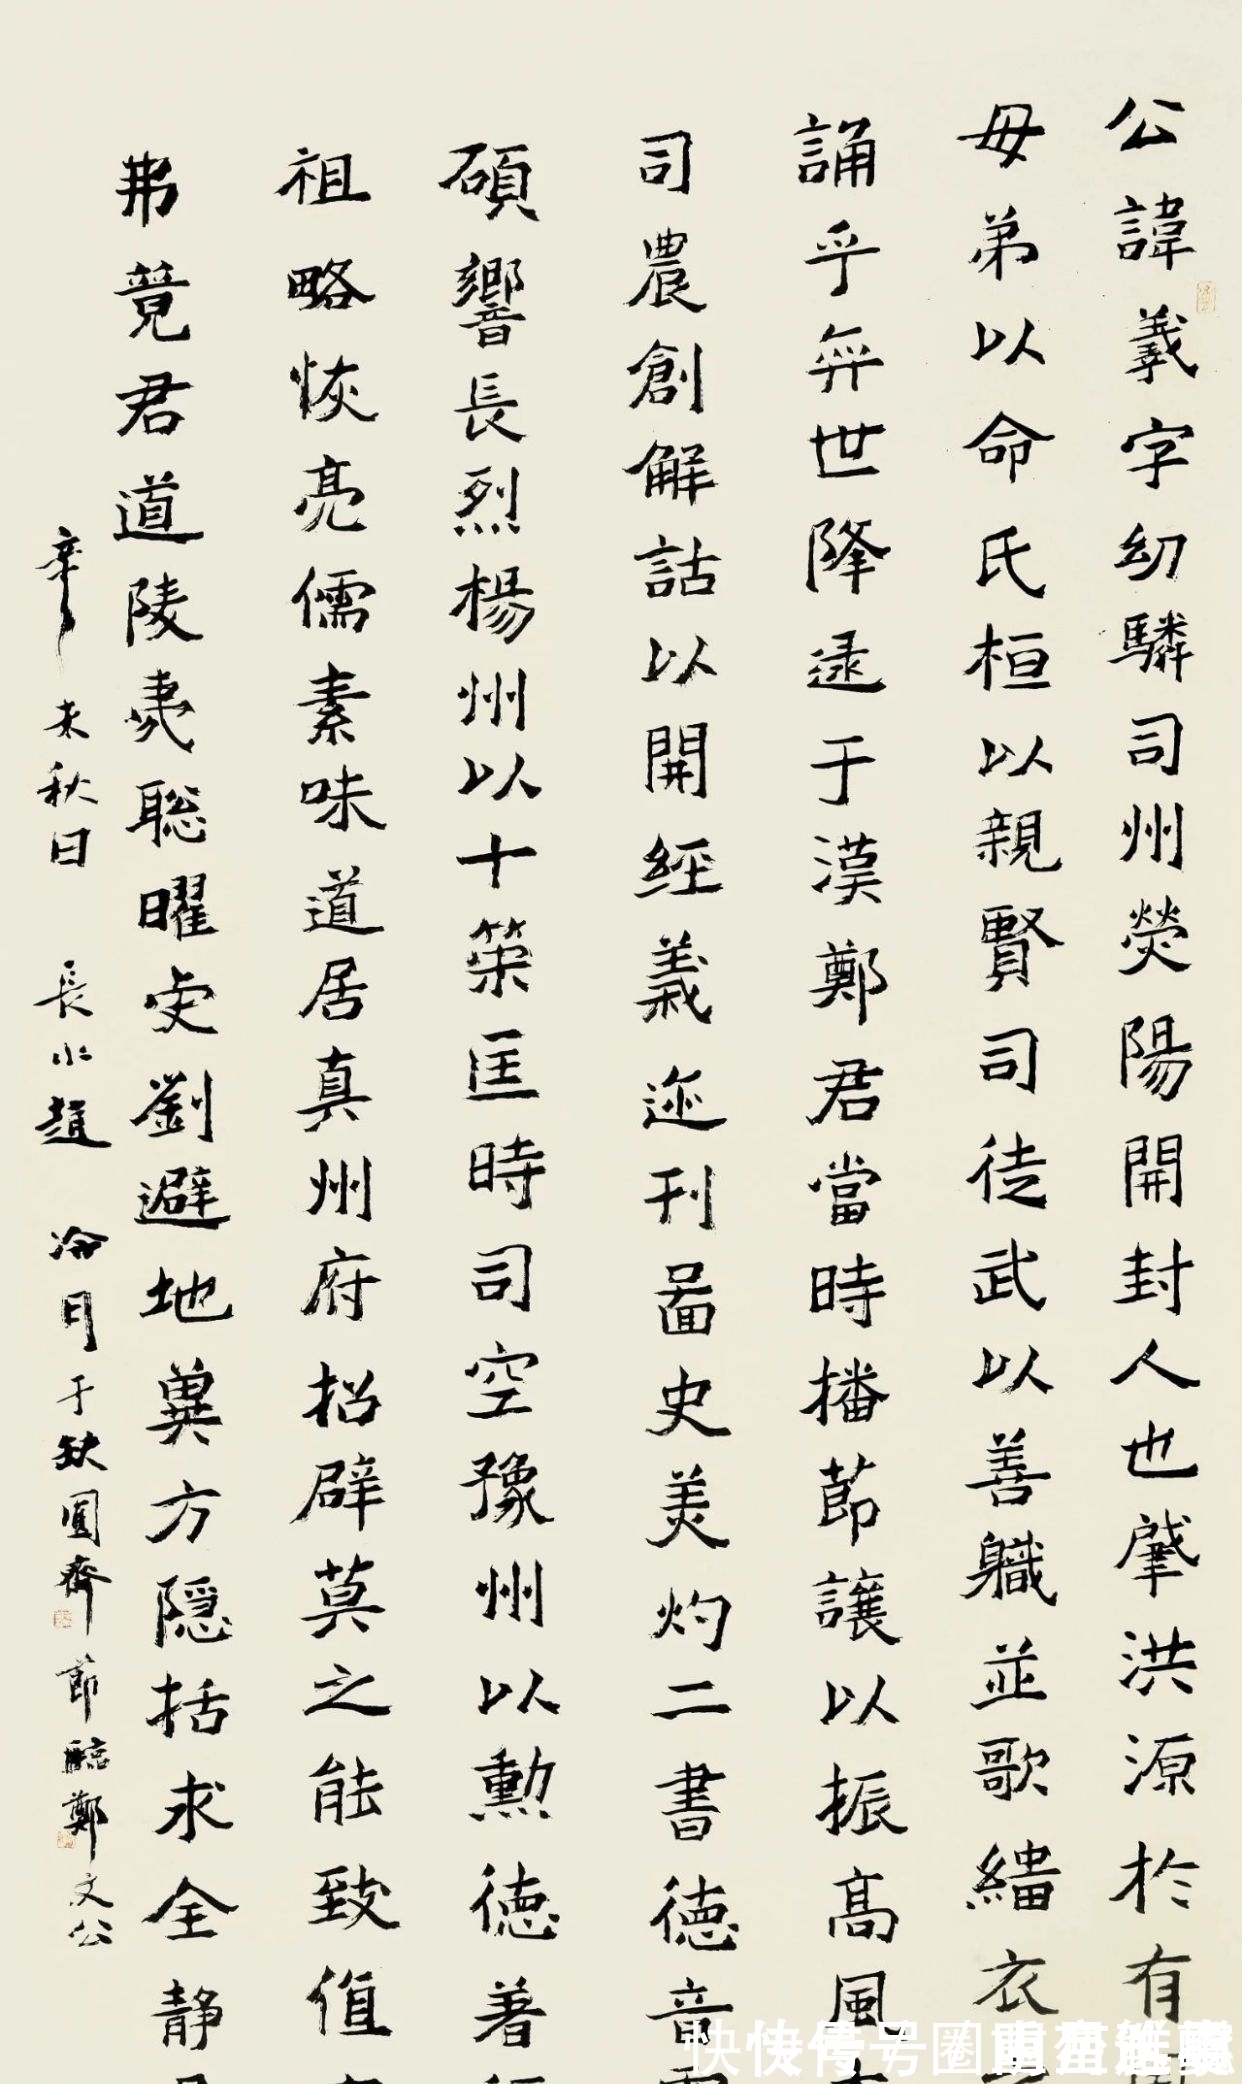 公諱羲字幼驎司州熒陽開封人也肇洪源於有
母弟以命氏桓以親賢司徒武以善職並歌緇衣
誦乎弈世降逮于漢鄭君當時播節讓以振高風
司農創解詁以開經義迹刊圖史美灼二書德音
碩響長烈楊州以十策匡時司空豫州以勳德著
祖略恢亮儒素味道居真州府招辟莫之能致值
弗竟君道陵夷聡曜虔劉避地冀方隱括求全靜
辛未秋日 長水趙 冷月于缺圓齋節臨鄭文公
快传号